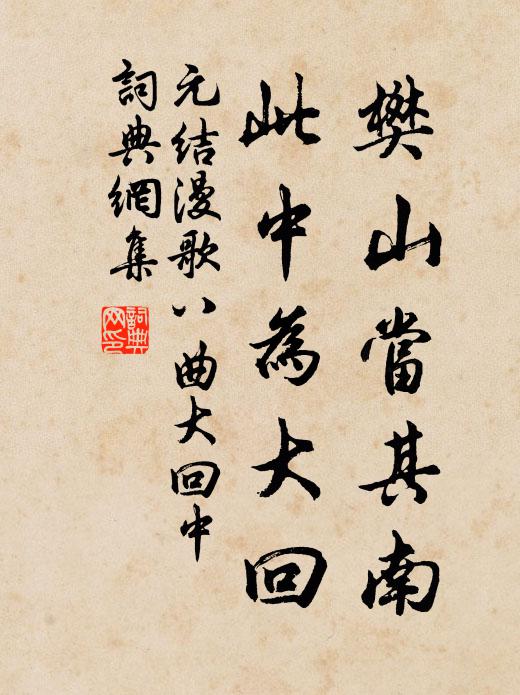 樊山當其南
此中為大回
元結漫歌八曲大回中
詞典網集
詞典
网印